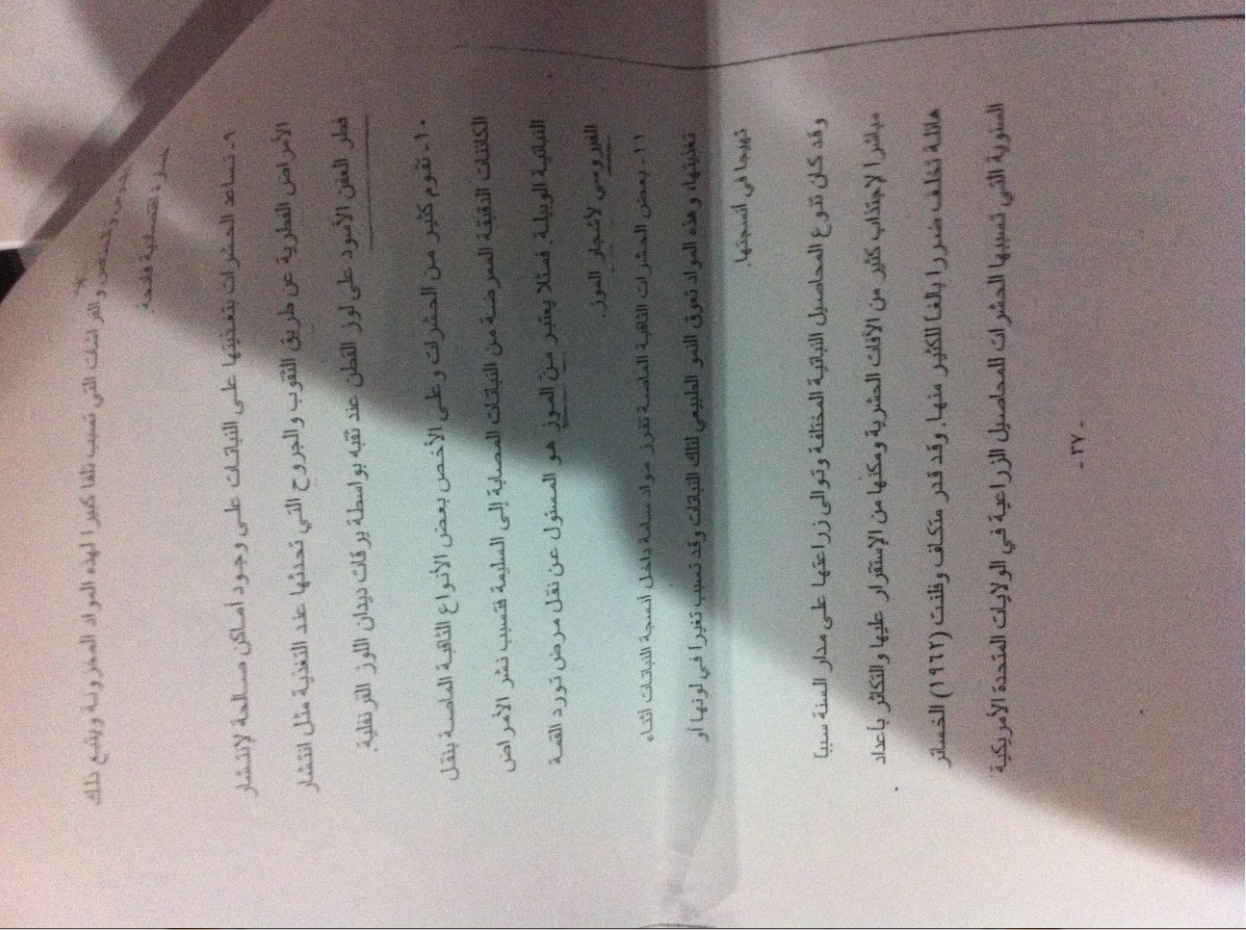 والخنافس والفراشات التي تسبب تلفا كبيرا لهذه المواد المخزونة ويتبع ذلك
اقتصادية فادحة.
٩- تساعد الحشرات بتغذيتها على النباتات على وجود أماكن صالحة لإنتشار
الأمراض الفطرية عن طريق الثقوب والجروح التي تحدثها عند التغذية مثل انتشار
فطر العفن الأسود على لوز القطن عند ثقبه بواسطة يرقات ديدان اللوز القرنفلية.
١٠- تقوم كثير من الحشرات وعلى الأخص بعض الأنواع الثاقبة الماصة بنقل
الكائنات الدقيقة الممرضة من النباتات المصابة إلى السليمة فتسبب نشر الأمراض
النباتية الوبيلة. فمثلا يعتبر من الموز هو المسئول عن نقل مرض تورد القمة
الفيروسي لأشجار الموز.
١١- بعض الحشرات الثاقبة الماصة تفرز مواد سامة داخل أنسجة النباتات أثناء
تغذيتها، وهذه المواد تعوق النمو الطبيعي لتلك النباتات وقد تسبب تغيرا في لونها أو
تهيجا في أنسجتها.
وقد كان تنوع المحاصيل النباتية المختلفة وتوالى زراعتها على مدار السنة سببا
مباشرا لإجتذاب كثير من الآفات الحشرية ومكنها من الإستقرار عليها والتكاثر بأعداد
هائلة تخلف ضررا بالغا للكثير منها. وقد قدر متكلف وفلنت (١٩٦٢) الخسائر
السنوية التي تسببها الحشرات للمحاصيل الزراعية في الولايات المتحدة الأمريكية
- ٢٧ -